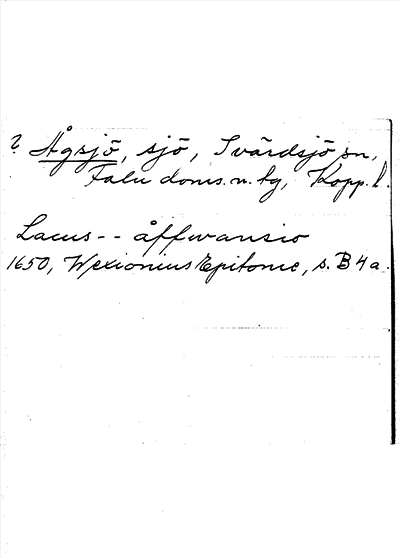 ? Ågsjö, sjö, Svärdsjö sn,
Falu doms. n. tg, Kopp. l.
Lacus -- åffwansio
1650, Wexionius Epitome, s. B 4 a.